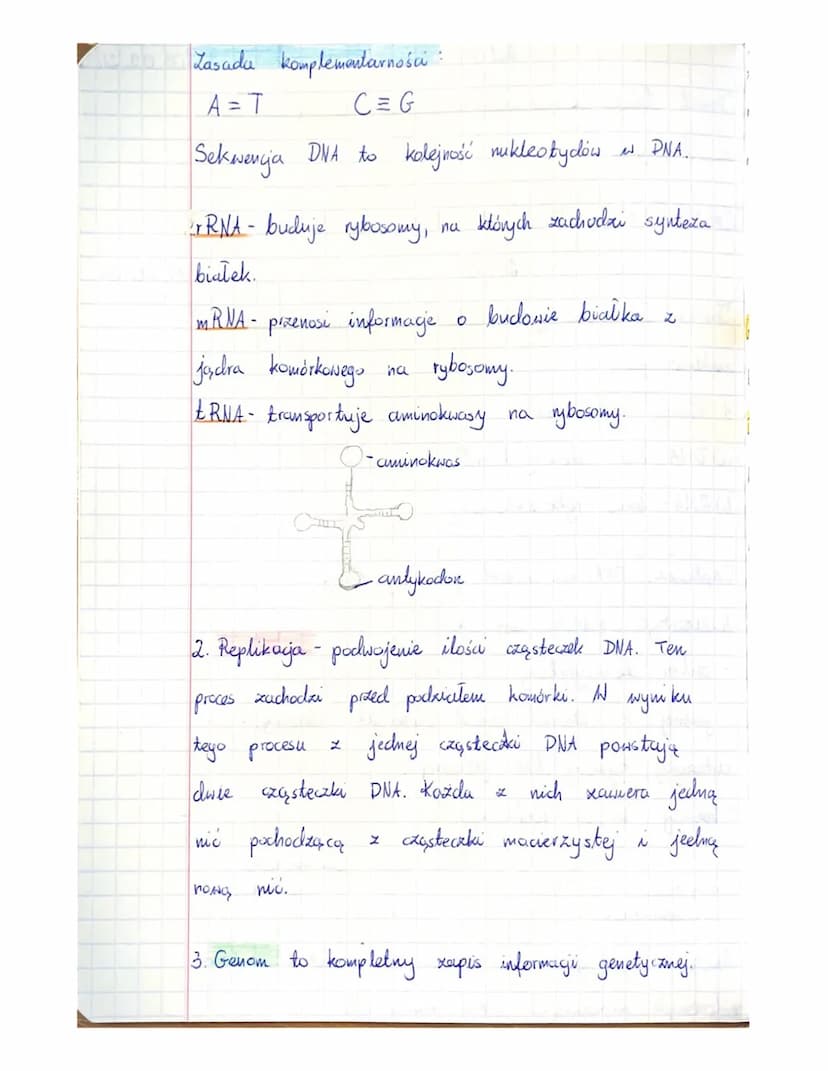 Zasada komplementarności:
A = T C ≡ G
Sekwencja DNA to kolejność nukleotydów w DNA.
rRNA - buduje rybosomy, na których zachodzi synteza
białek.
mRNA - przenosi informacje o budowie białka z
jądra komórkowego na rybosomy.
tRNA - transportuje aminokwasy na rybosomy.
- aminokwas
antykodon
2. Replikacja - podwojenie ilości cząsteczek DNA. Ten
proces zachodzi przed podziałem komórki. W wyniku
tego procesu z jednej cząsteczki DNA powstają
dwie cząsteczki DNA. Każda z nich zawiera jedną
nić pochodzącą z cząsteczki macierzystej i jedną
nową nić.
3. Genom to kompletny zapis informacji genetycznej.